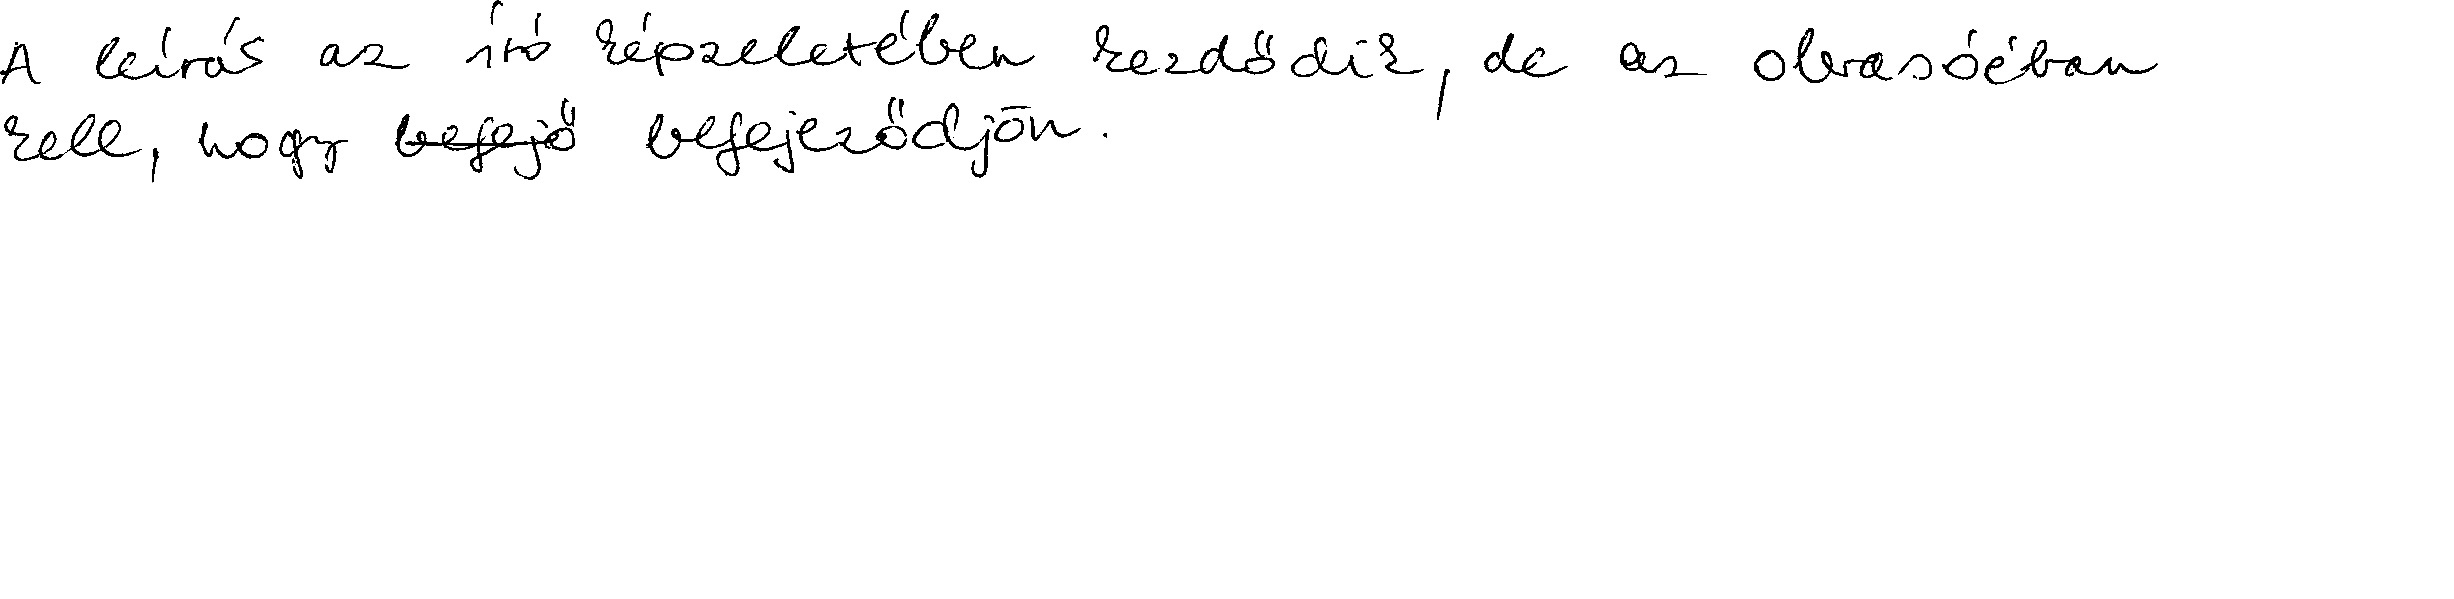 A leírás az író képzeletében kezdődik, de az olvasóéban
kell, hogy befejő befejeződjön.